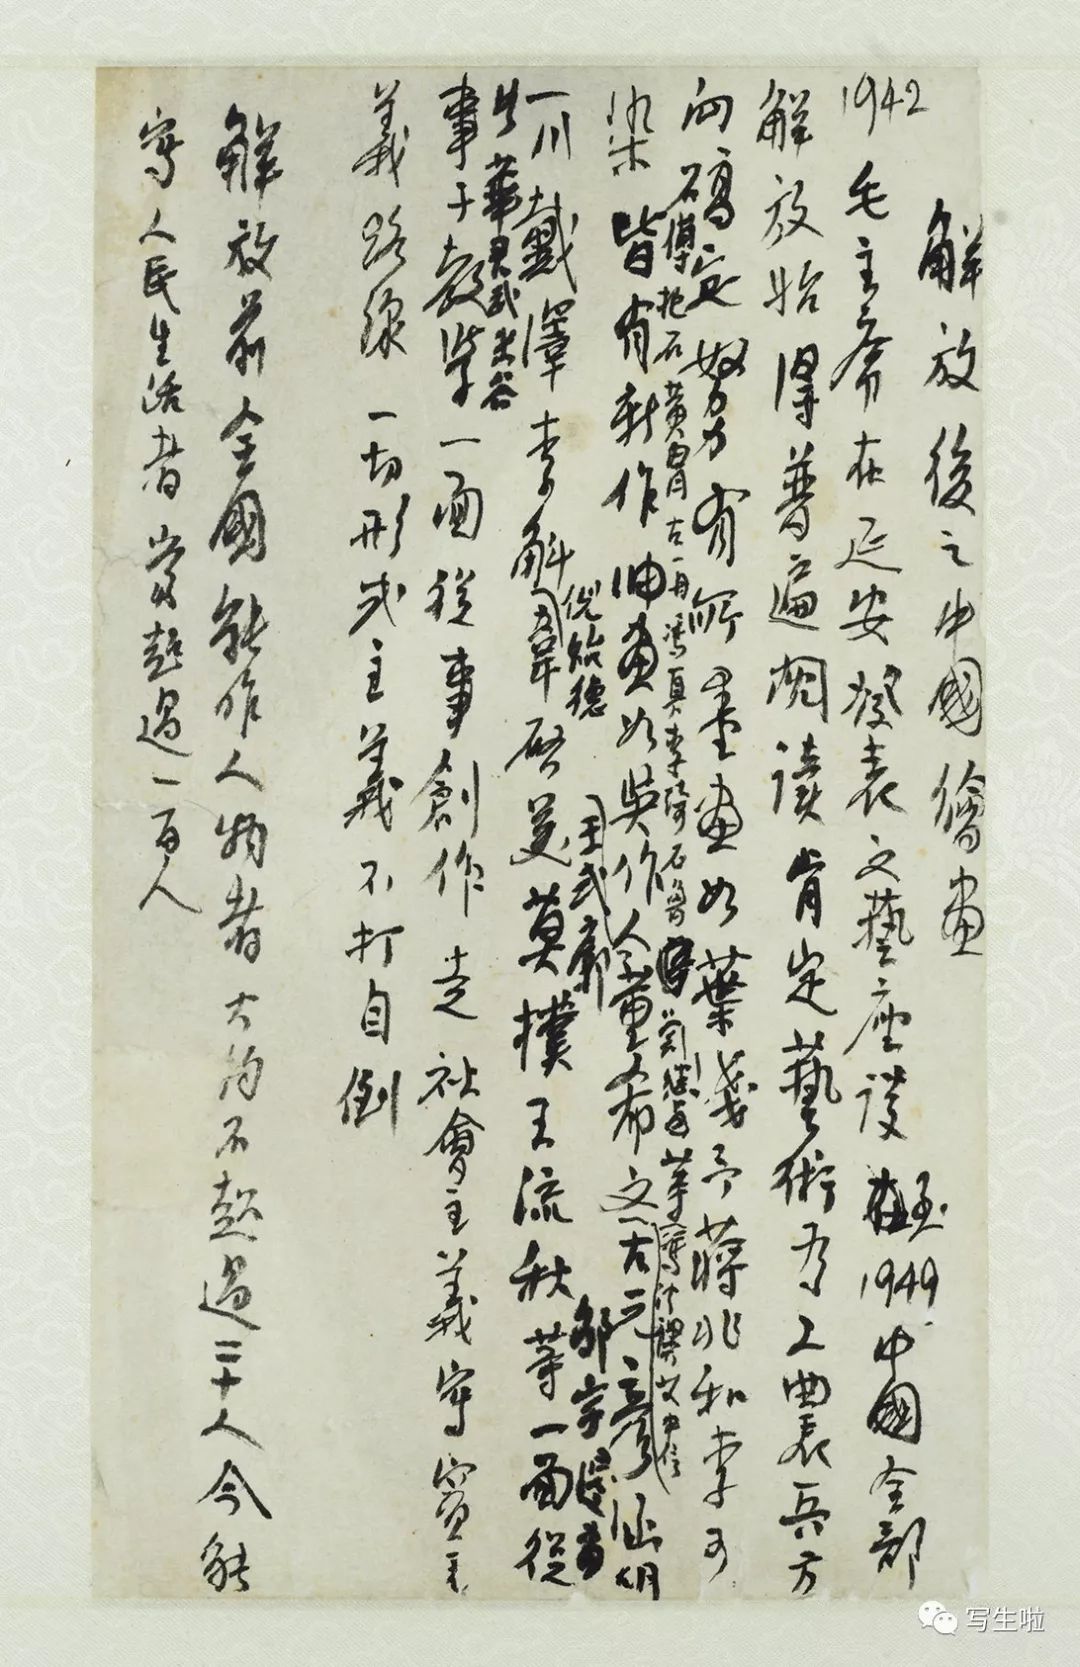 解放後之中國繪畫
1942 毛主席在延安發表文藝座談 至1949中國全部
解放始得普遍閱讀肯定藝術為工農兵方
向 確定努力有所 墨畫如葉淺予蔣兆和李可
石傅抱石黃胄古一舟 李琦石魯 等
染皆有新作油畫如吳作人董希文古元彥涵胡
一川戴澤李斛韋啓美莫樸王流秋等一面從
倪貽德 王式廓 鄒宗緒
華君武米谷
事于教學一面從事創作走社會主義寫實主
義路線一切形式主義不打自倒
解放前全國能作人物者大約不超過二十人今能
寫人民生活者當超過一百人
写生啦